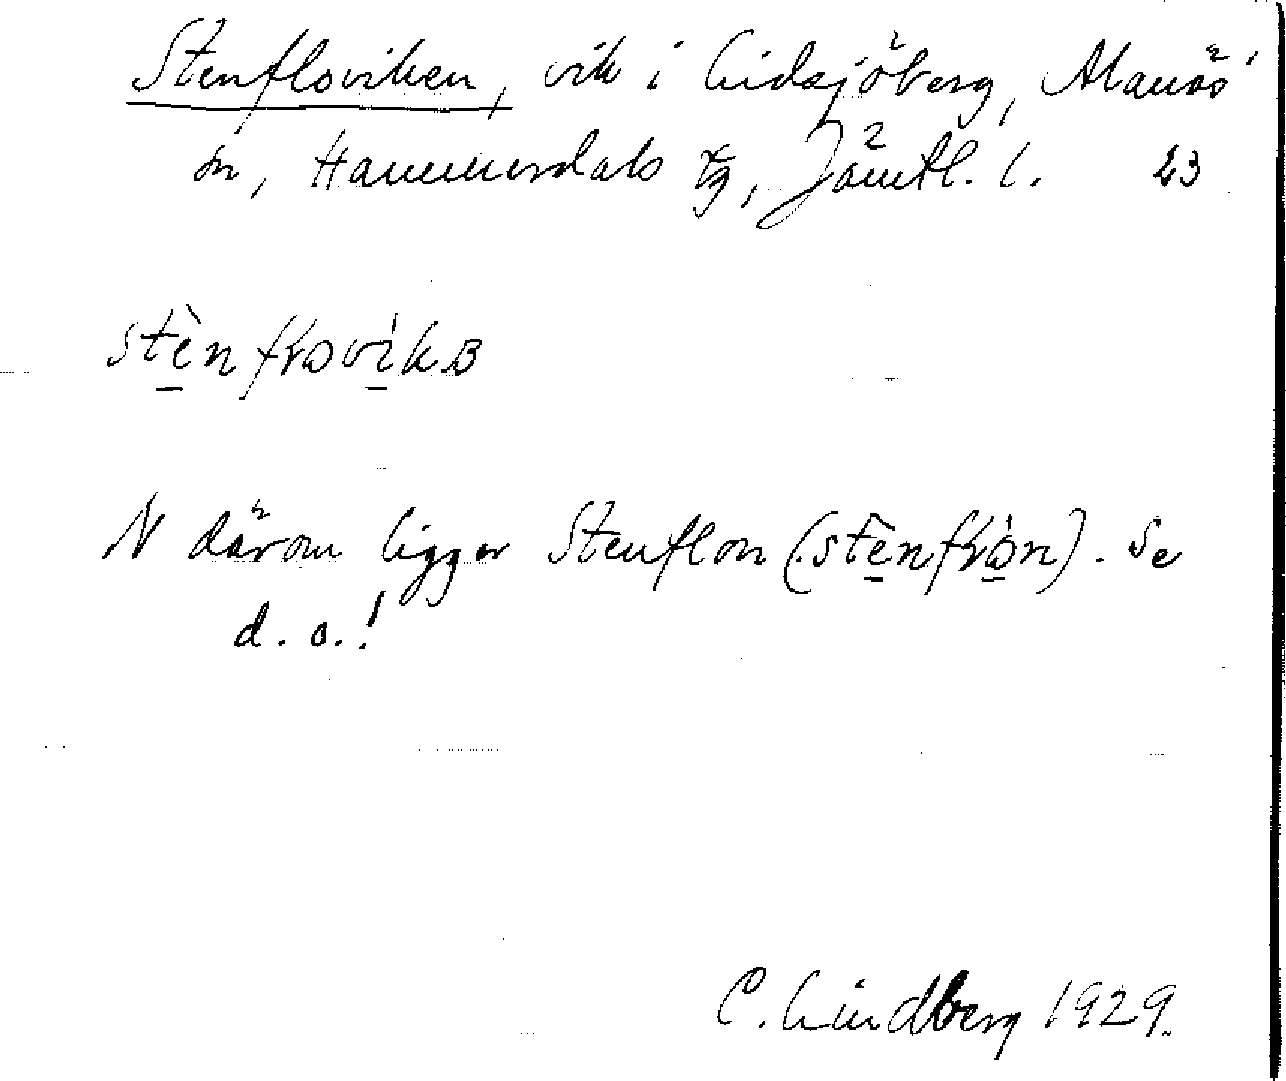 Stenfloviken, vik i Lidsjöberg, Alanäs
sn, Hammerdals tg, Jämtl. l. 23
stènfロovìkɞ
N därom ligger Stenflon (stènfロòn). Se
d. o.!
C. Lindberg 1929.